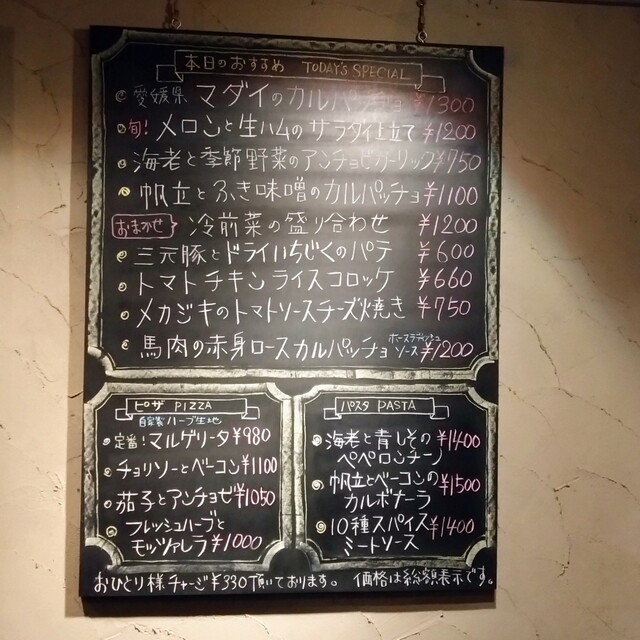 本日のおすすめ TODAY'S SPECIAL
愛媛県 マダイのカルパッチョ ¥1300
旬! メロンと生ハムの サラダ仕立て ¥1200
海老と季節野菜のアンチョビガーリック ¥750
帆立とふき味噌のカルパッチョ ¥1100
おまかせ 冷前菜の盛り合わせ ¥1200
三元豚とドライいちじくのパテ ¥600
トマトチキンライスコロッケ ¥660
メカジキのトマトソースチーズ焼き ¥750
馬肉の赤身ロースカルパッチョ ホースラディッシュソース ¥1200
ピザ PIZZA
自家製ハーブ生地
定番! マルゲリータ ¥980
チョリソーとベーコン ¥1100
茄子とアンチョビ ¥1050
フレッシュハーブと
モッツァレラ ¥1000
パスタ PASTA
海老と青しその ¥1400
ペペロンチーノ
帆立とベーコンの ¥1500
カルボナーラ
10種スパイス ¥1400
ミートソース
おひとり様チャージ¥330頂いております。 価格は総額表示です。